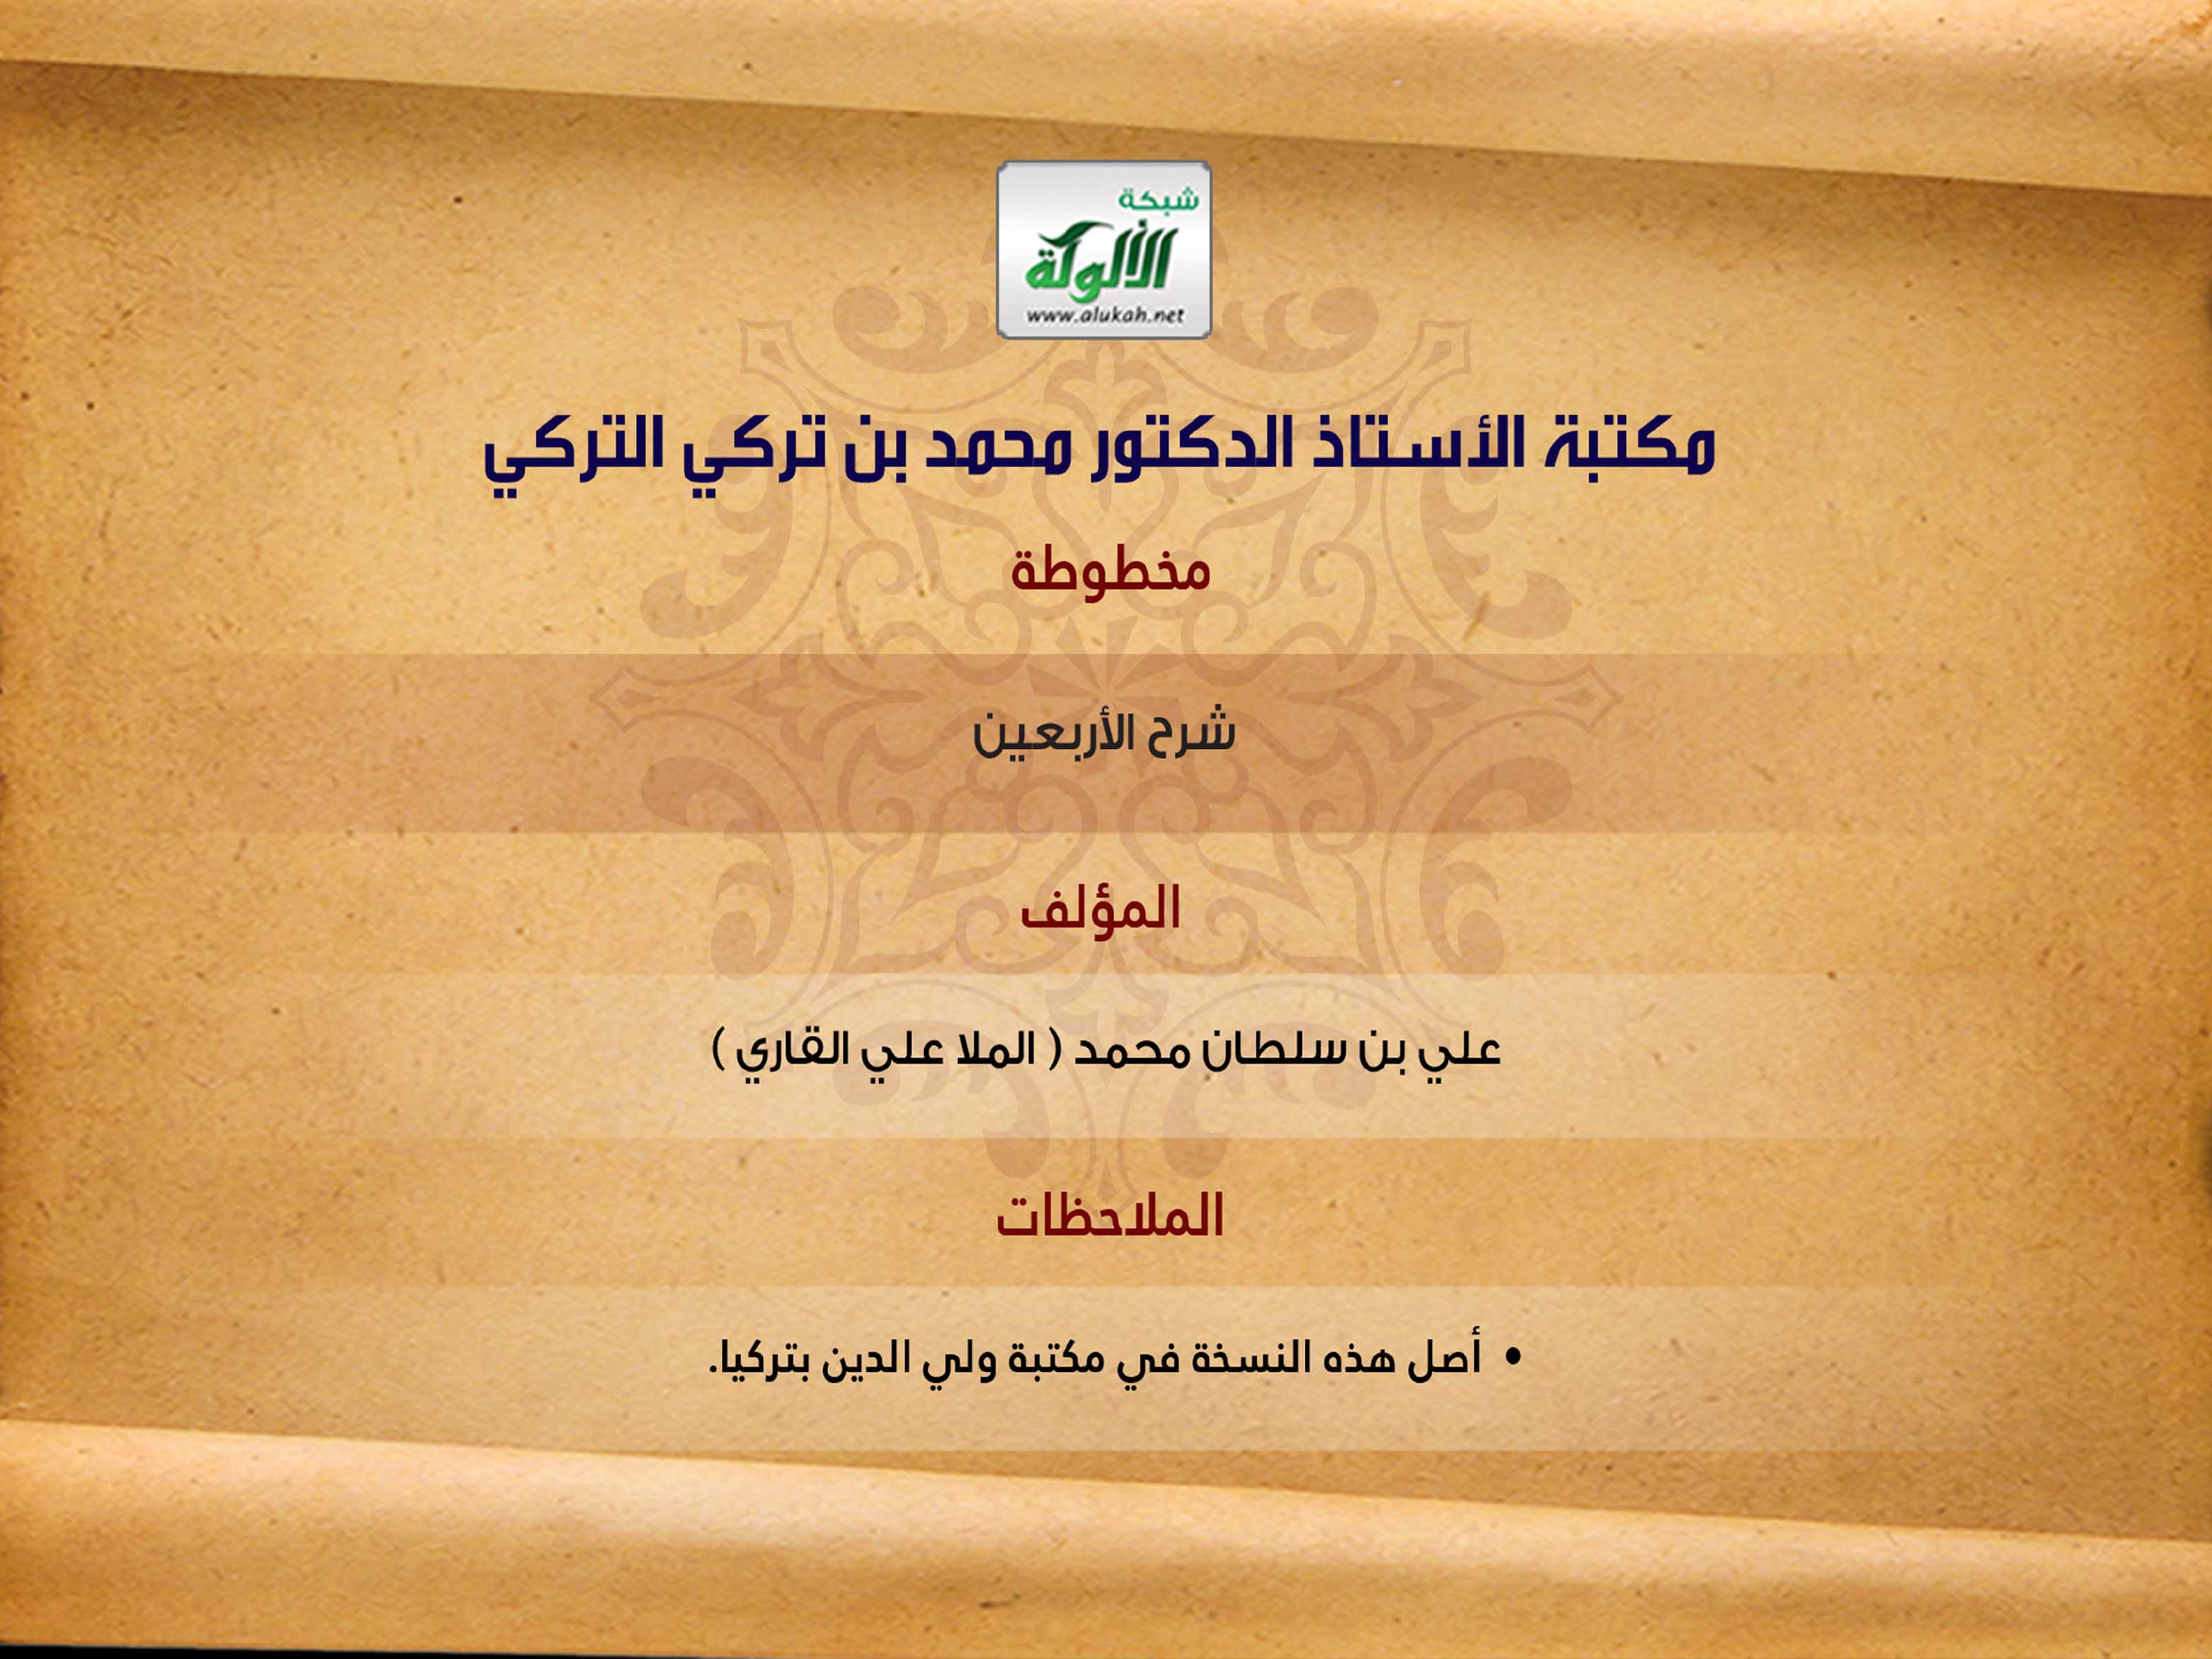 شبكة
الألوكة
www.alukah.net
مكتبة الأستاذ الدكتور محمد بن تركي التركي
مخطوطة
شرح الأربعين
المؤلف
علي بن سلطان محمد ( الملا علي القاري )
الملاحظات
• أصل هذه النسخة في مكتبة ولي الدين بتركيا.